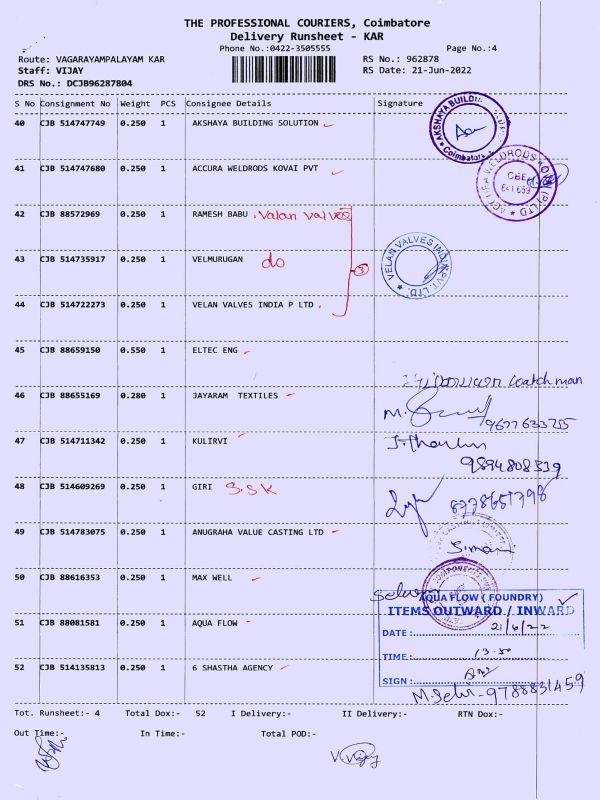 THE PROFESSIONAL COURIERS, Coimbatore
Delivery Runsheet - KAR
Phone No.:0422-3505555 Page No.:4
Route: VAGARAYAMPALAYAM KAR RS No.: 962878
Staff: VIJAY RS Date: 21-Jun-2022
DRS No.: DCJB96287804
S No Consignment No Weight PCS Consignee Details Signature
40 CJB 514747749 0.250 1 AKSHAYA BUILDING SOLUTION
AKSHAYA BUILDING
Coimbatore
41 CJB 514747680 0.250 1 ACCURA WELDRODS KOVAI PVT
ACCURA WELDRODS KOVAI (P) LTD
CBE
641 659
42 CJB 88572969 0.250 1 RAMESH BABU . Valan valves
43 CJB 514735917 0.250 1 VELMURUGAN do
3
VELAN VALVES INDIA PVT. LTD.
44 CJB 514722273 0.250 1 VELAN VALVES INDIA P LTD
45 CJB 88659150 0.550 1 ELTEC ENG
watchman
46 CJB 88655169 0.280 1 JAYARAM TEXTILES
9677633755
47 CJB 514711342 0.250 1 KULIRVI
9894808339
48 CJB 514609269 0.250 1 GIRI S.S.K
8778651798
49 CJB 514783075 0.250 1 ANUGRAHA VALUE CASTING LTD
50 CJB 88616353 0.250 1 MAX WELL
51 CJB 88081581 0.250 1 AQUA FLOW
AQUA FLOW (FOUNDRY)
ITEMS OUTWARD / INWARD
DATE : 21/6/22
TIME : 13.50
SIGN :
52 CJB 514135813 0.250 1 6 SHASTHA AGENCY
M.Selvi - 9788831459
Tot. Runsheet:- 4 Total Dox:- 52 I Delivery:- II Delivery:- RTN Dox:-
Out Time:- In Time:- Total POD:-
V.Vijay